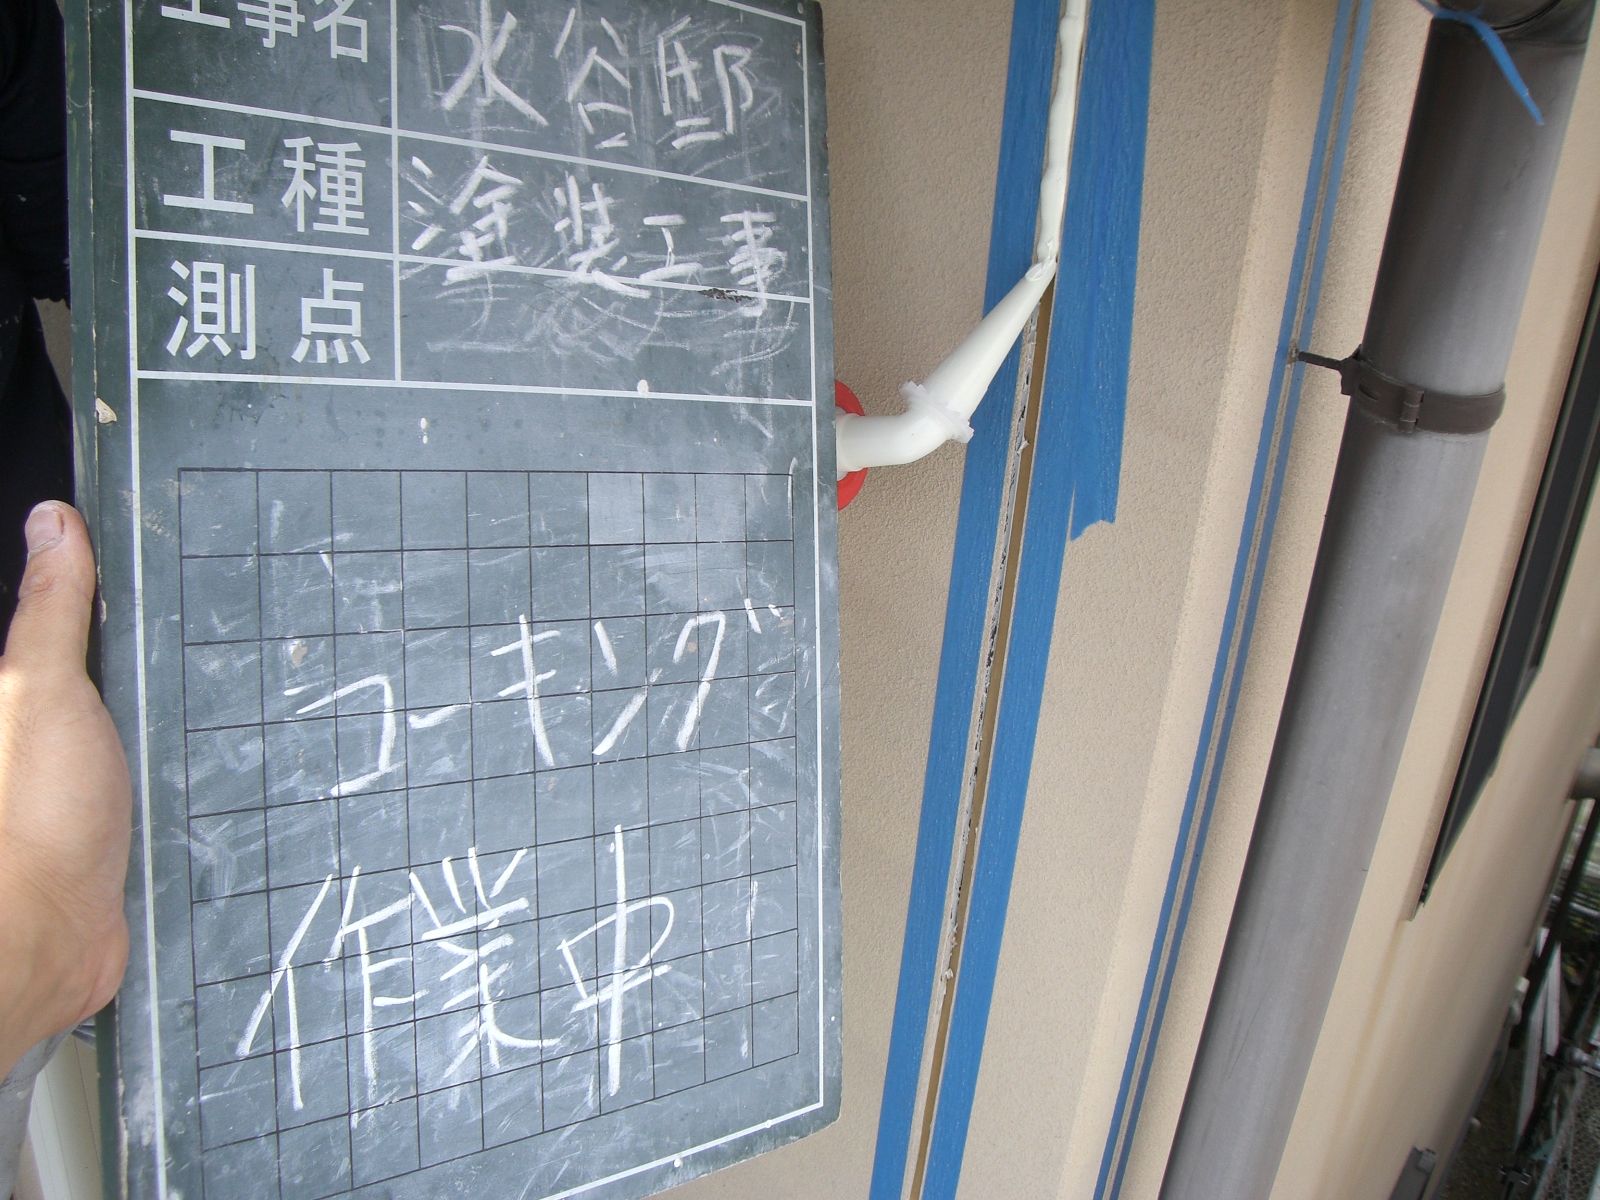 工事名 水谷邸
工種 塗装工事
測点
コーキング
作業中